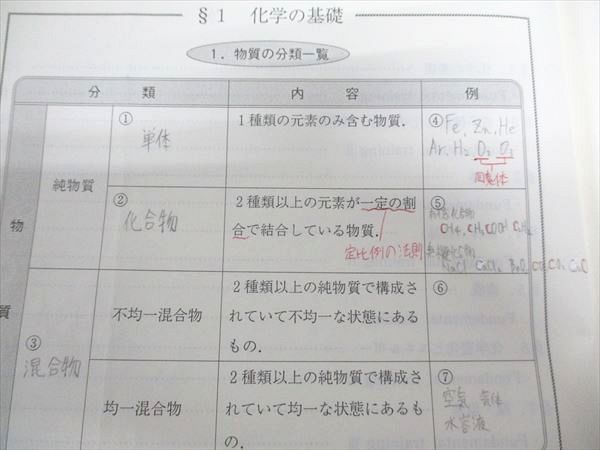 §1 化学の基礎
1. 物質の分類一覧
分類 内容 例
物質
純物質
①
単体
1種類の元素のみ含む物質.
④
Fe, Zn, He
Ar, H₂ O₂ O₃
同素体
②
化合物
2種類以上の元素が一定の割
合で結合している物質.
定比例の法則
⑤
有機化合物
CH₄, CH₃COOH
無機化合物
NaCl CaCl₂
③
混合物
不均一混合物
2種類以上の純物質で構成さ
れていて不均一な状態にある
もの.
⑥
均一混合物
2種類以上の純物質で構成さ
れていて均一な状態にあるも
の.
⑦
空気 気体
水溶液